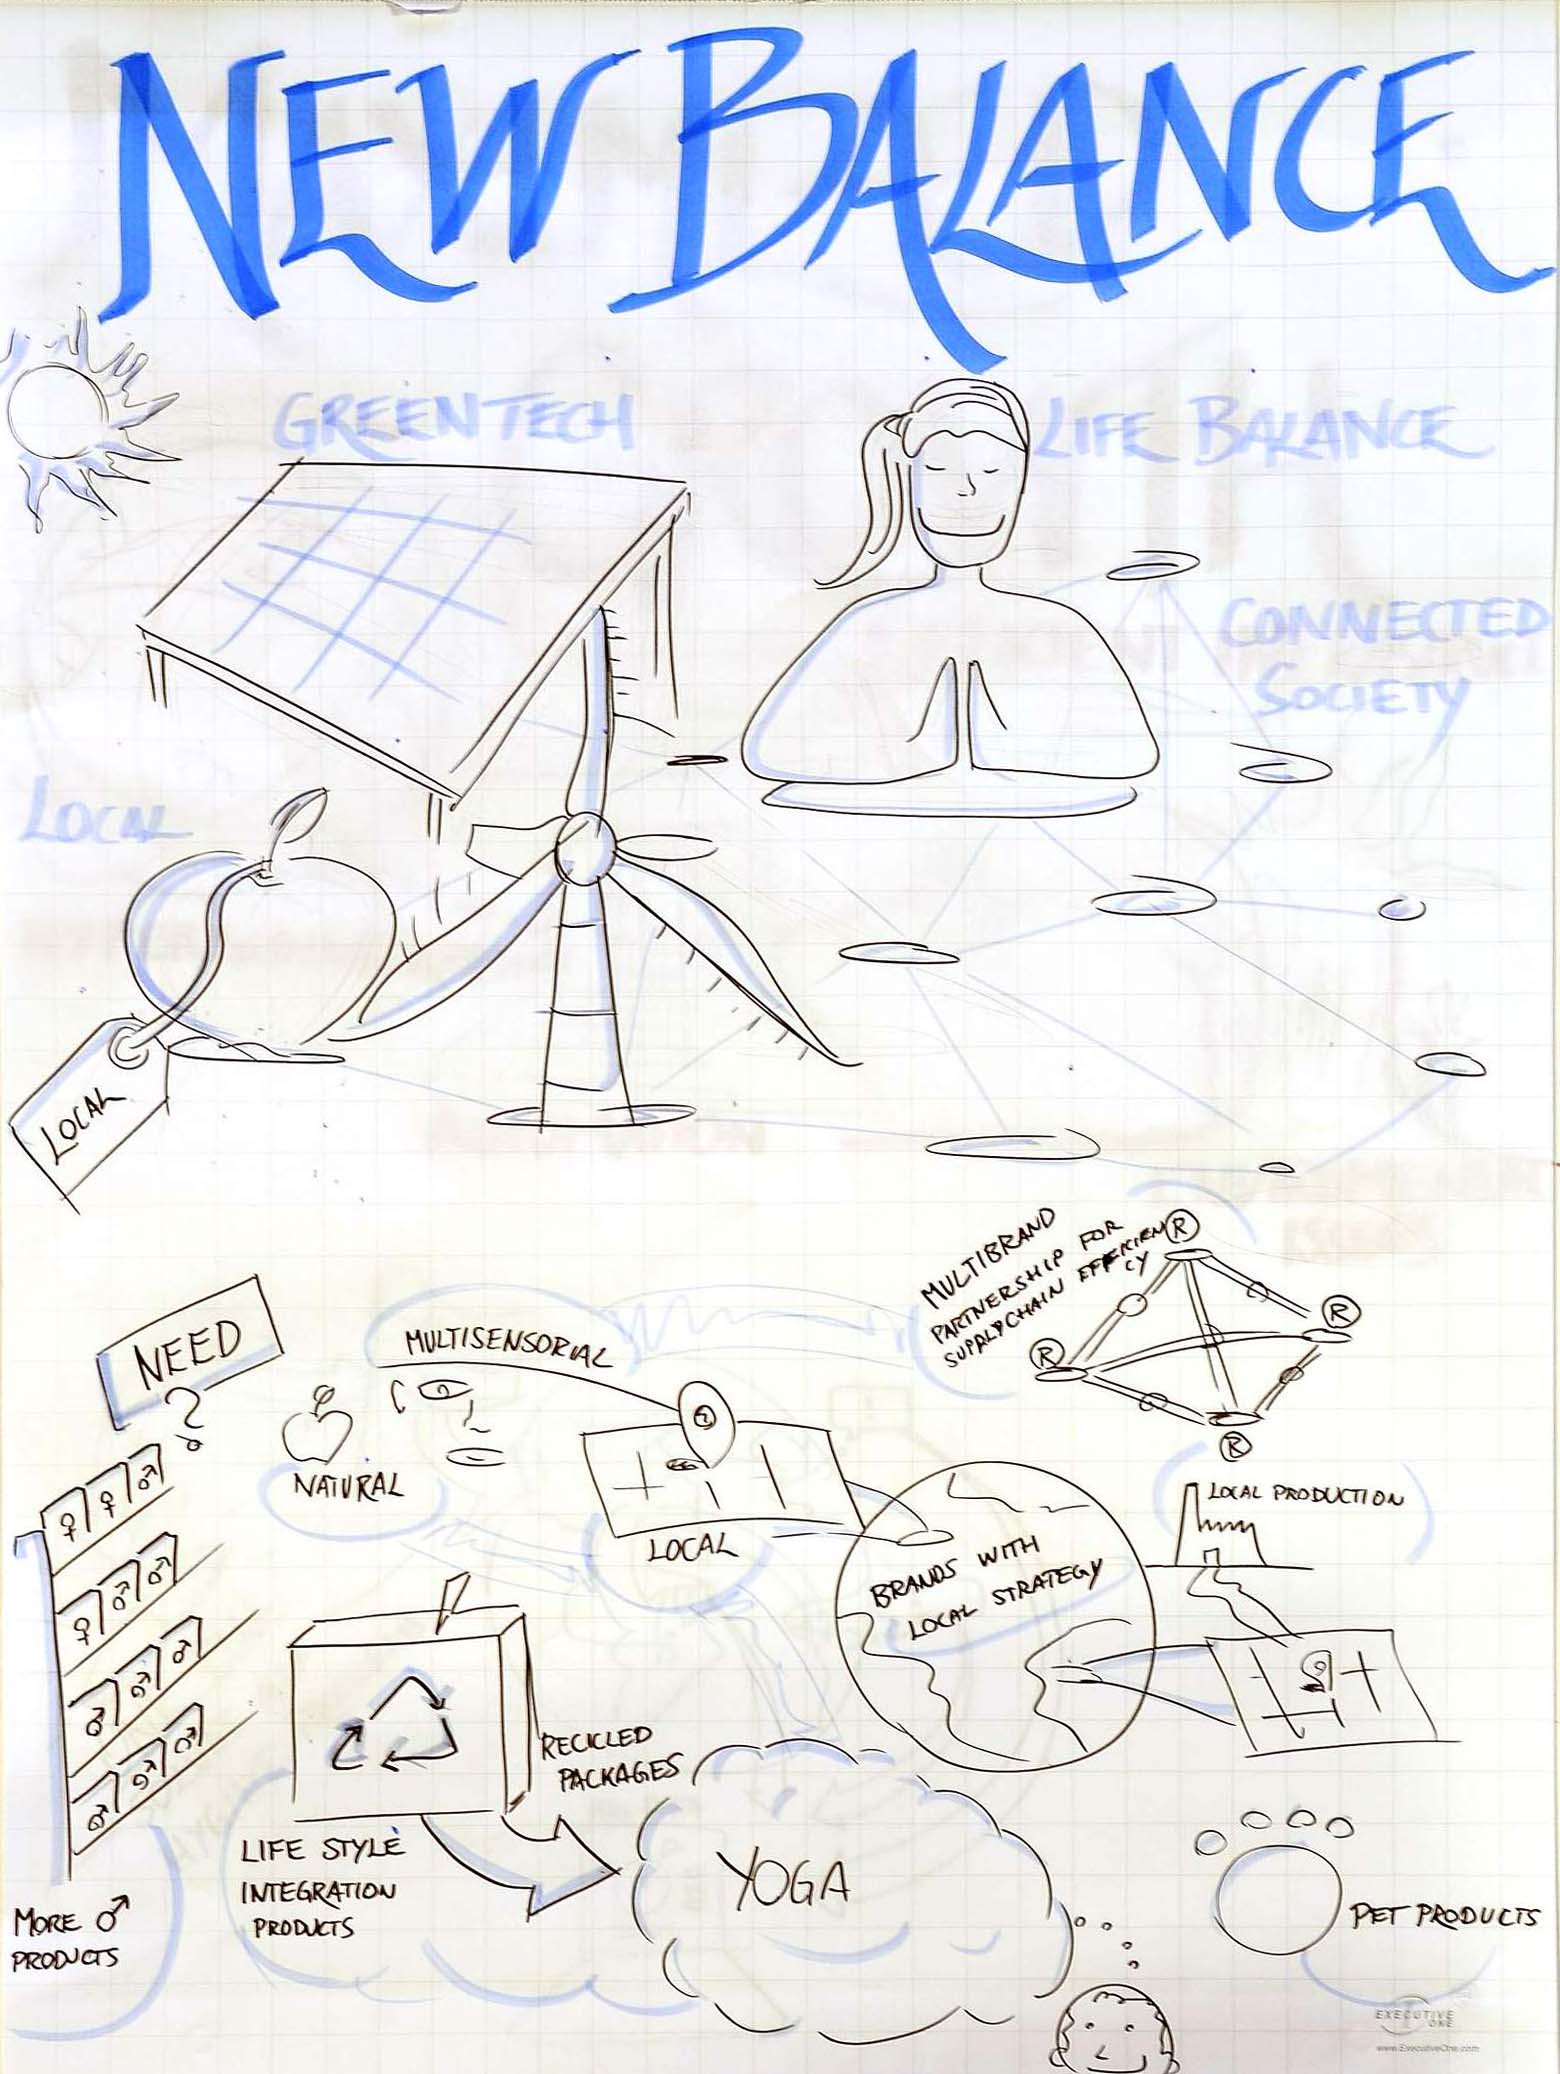 NEW BALANCE
GREENTECH
LIFE BALANCE
CONNECTED
SOCIETY
LOCAL
LOCAL
MULTIBRAND
PARTNERSHIP FOR
SUPPLYCHAIN EFFICIEN
CY
R
R
R
R
NEED
?
MULTISENSORIAL
NATURAL
LOCAL
BRANDS WITH
LOCAL STRATEGY
LOCAL PRODUCTION
♀ ♀ ♂
♀ ♂ ♂
♂ ♂ ♂
♂ ♂ ♂
RECICLED
PACKAGES
LIFE STYLE
INTEGRATION
PRODUCTS
YOGA
MORE ♂
PRODUCTS
PET PRODUCTS
EXECUTIVE
ONE
www.ExecutiveOne.com